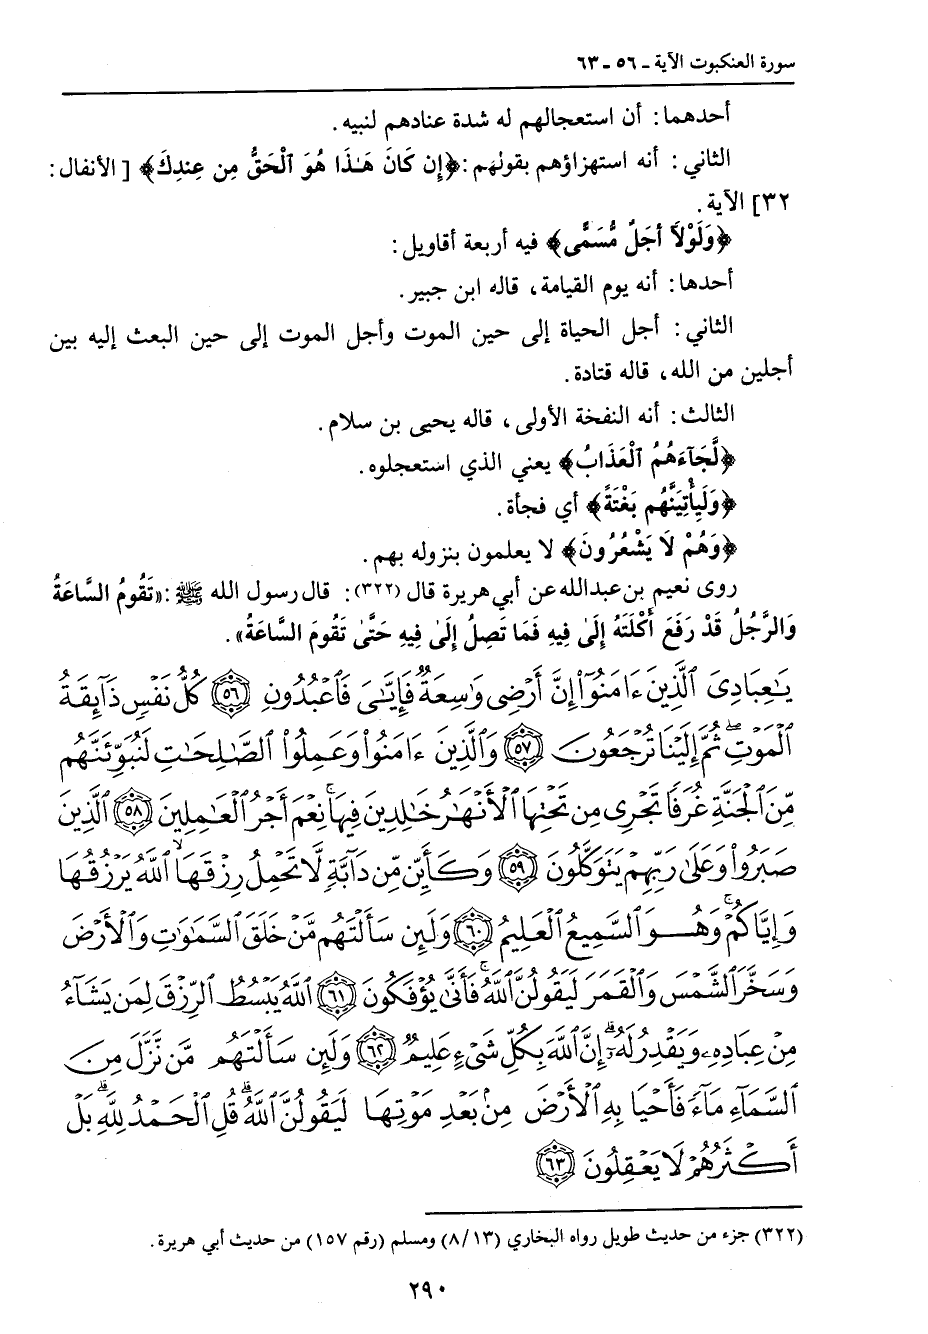 سورة العنكبوت الآية ـ ٥٦ ـ ٦٣
أحدهما: أن استعجالهم له شدة عنادهم لنبيه.
الثاني: أنه استهزاؤهم بقولهم: ﴿إِن كَانَ هَٰذَا هُوَ ٱلْحَقُّ مِن عِندِكَ﴾ [الأنفال:
٣٢] الآية.
﴿وَلَوْلَاۤ أَجَلٌ مُّسَمًّى﴾ فيه أربعة أقاويل:
أحدها: أنه يوم القيامة، قاله ابن جبير.
الثاني: أجل الحياة إلى حين الموت وأجل الموت إلى حين البعث إليه بين
أجلين من الله، قاله قتادة.
الثالث: أنه النفخة الأولى، قاله يحيى بن سلام.
﴿لَّجَآءَهُمُ ٱلْعَذَابُ﴾ يعني الذي استعجلوه.
﴿وَلَيَأْتِيَنَّهُم بَغْتَةً﴾ أي فجأة.
﴿وَهُمْ لَا يَشْعُرُونَ﴾ لا يعلمون بنزوله بهم.
روى نعيم بن عبدالله عن أبي هريرة قال (٣٢٢): قال رسول الله ﷺ: «تَقُومُ السَّاعَةُ
وَالرَّجُلُ قَدْ رَفَعَ أَكْلَتَهُ إِلَىٰ فِيهِ فَمَا تَصِلُ إِلَىٰ فِيهِ حَتَّىٰ تَقُومَ السَّاعَةُ».
يَٰعِبَادِىَ ٱلَّذِينَ ءَامَنُوٓا۟ إِنَّ أَرْضِى وَٰسِعَةٌ فَإِيَّٰىَ فَٱعْبُدُونِ ﴿٥٦﴾ كُلُّ نَفْسٍ ذَآئِقَةُ
ٱلْمَوْتِ ۖ ثُمَّ إِلَيْنَا تُرْجَعُونَ ﴿٥٧﴾ وَٱلَّذِينَ ءَامَنُوا۟ وَعَمِلُوا۟ ٱلصَّٰلِحَٰتِ لَنُبَوِّئَنَّهُم
مِّنَ ٱلْجَنَّةِ غُرَفًا تَجْرِى مِن تَحْتِهَا ٱلْأَنْهَٰرُ خَٰلِدِينَ فِيهَا ۚ نِعْمَ أَجْرُ ٱلْعَٰمِلِينَ ﴿٥٨﴾ ٱلَّذِينَ
صَبَرُوا۟ وَعَلَىٰ رَبِّهِمْ يَتَوَكَّلُونَ ﴿٥٩﴾ وَكَأَيِّن مِّن دَآبَّةٍ لَّا تَحْمِلُ رِزْقَهَا ٱللَّهُ يَرْزُقُهَا
وَإِيَّاكُمْ ۚ وَهُوَ ٱلسَّمِيعُ ٱلْعَلِيمُ ﴿٦٠﴾ وَلَئِن سَأَلْتَهُم مَّنْ خَلَقَ ٱلسَّمَٰوَٰتِ وَٱلْأَرْضَ
وَسَخَّرَ ٱلشَّمْسَ وَٱلْقَمَرَ لَيَقُولُنَّ ٱللَّهُ ۖ فَأَنَّىٰ يُؤْفَكُونَ ﴿٦١﴾ ٱللَّهُ يَبْسُطُ ٱلرِّزْقَ لِمَن يَشَآءُ
مِنْ عِبَادِهِۦ وَيَقْدِرُ لَهُۥٓ ۚ إِنَّ ٱللَّهَ بِكُلِّ شَىْءٍ عَلِيمٌ ﴿٦٢﴾ وَلَئِن سَأَلْتَهُم مَّن نَّزَّلَ مِنَ
ٱلسَّمَآءِ مَآءً فَأَحْيَا بِهِ ٱلْأَرْضَ مِنۢ بَعْدِ مَوْتِهَا لَيَقُولُنَّ ٱللَّهُ ۚ قُلِ ٱلْحَمْدُ لِلَّهِ ۚ بَلْ
أَكْثَرُهُمْ لَا يَعْقِلُونَ ﴿٦٣﴾
(٣٢٢) جزء من حديث طويل رواه البخاري (٨/١٣) ومسلم (رقم ١٥٧) من حديث أبي هريرة.
٢٩٠